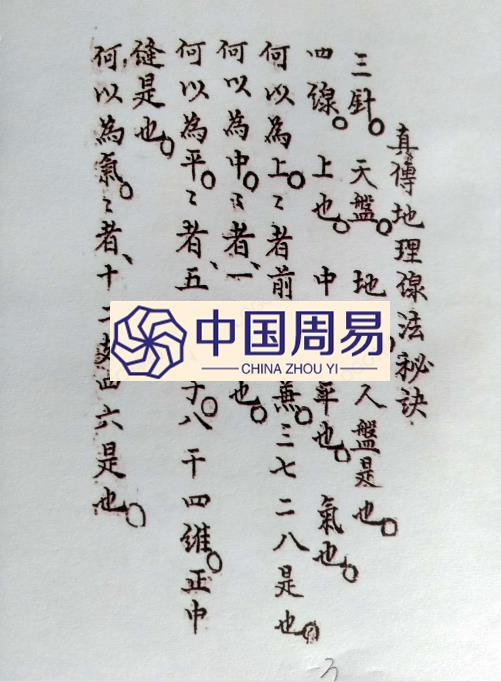 真傳地理線法秘訣
三針。天盤。地人盤是也。
四線。上也。中平也。氣也。
何以為上。〻者前兼三七二八是也。
何以為中。〻者、一也。
何以為平。〻者五于。八干四維。正中
縫是也。
何以為氣。〻者、十二支四六是也。
中国周易
CHINA ZHOU YI
-3